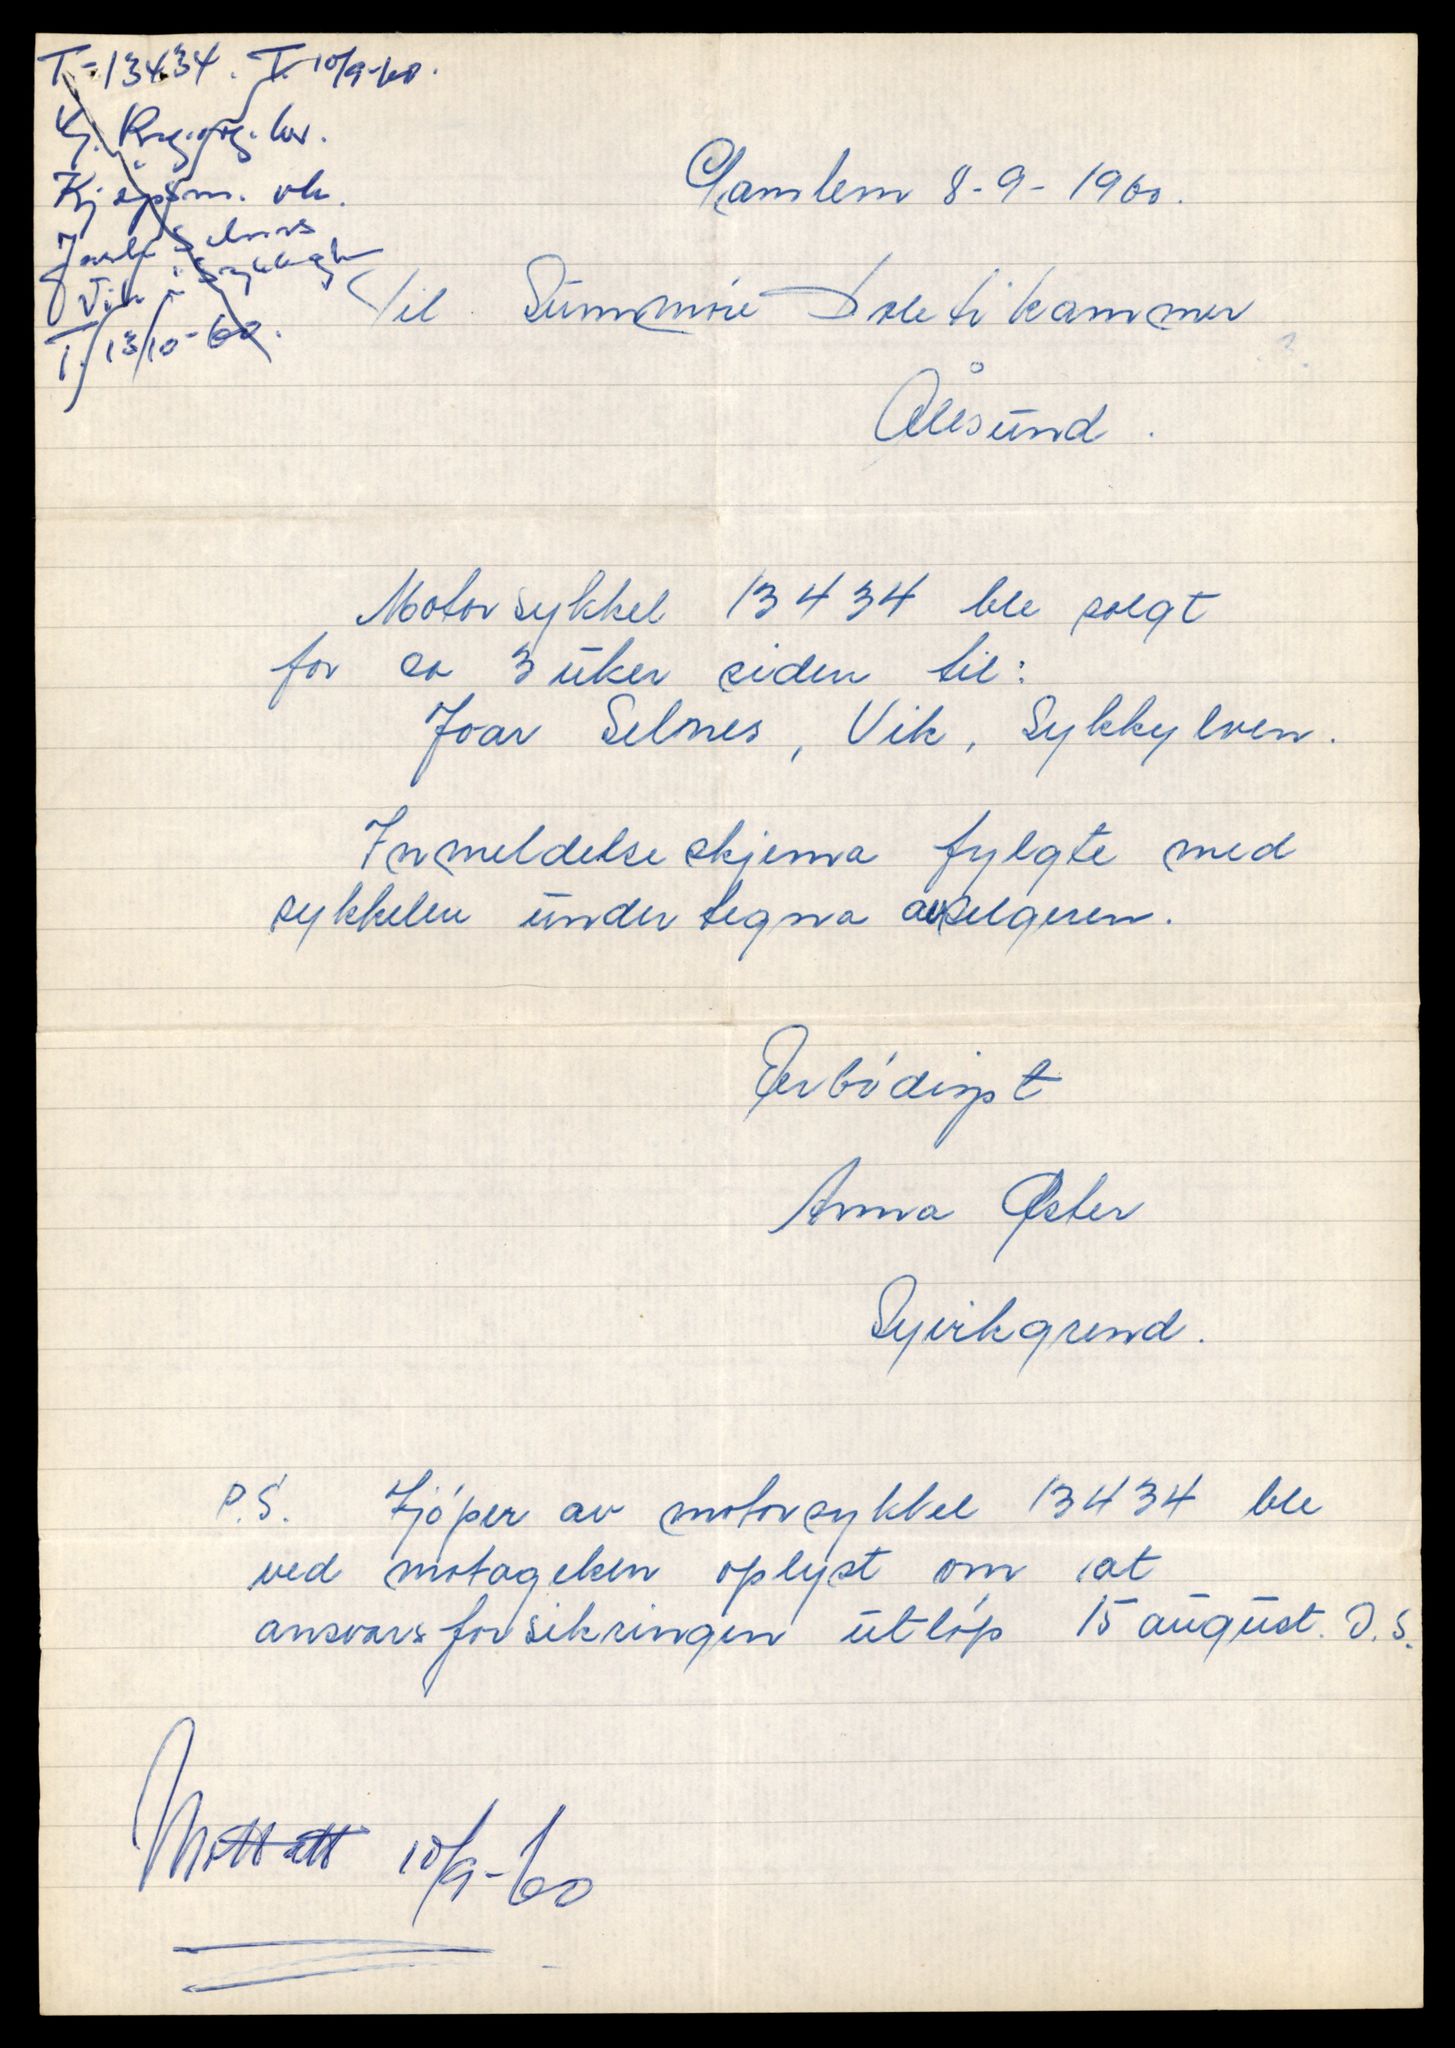 T-13434. T. 10/9-60.
Kj. Reg. og. lov.
Kjøpsm. vk.
Selnes
Vik i Sykkylv
T. 13/10-60.
Gamlem 8-9-1960.
Til Sunnmøre Politikammer
Ålesund.
Motorsykkel 13434 ble solgt
for ca 3 uker siden til:
Joar Selnes, Vik, Sykkylven.
Innmeldelse skjema fylgte med
sykkelen undertegna av selgeren.
Ærbødigst
Anna Øster
Syvikgrend.
P.S. Kjøper av motorsykkel 13434 ble
ved motagelsen oplyst om at
ansvarsforsikringen utløp 15 august. D.S.
Mottatt 10/9-60